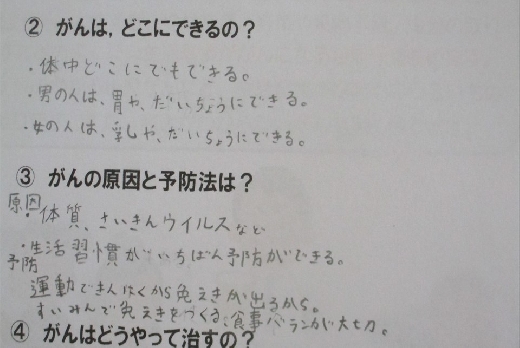 ② がんは，どこにできるの？
・体中どこにでもできる。
・男の人は、胃や、だいちょうにできる。
・女の人は、乳しや、だいちょうにできる。
③ がんの原因と予防法は？
原因
・体質、さいきんウイルスなど
・生活習慣がいちばん予防ができる。
予防
運動できんにくから免えきが出るから。
すいみんで免えきをつくる。食事バランスが大切。
④ がんはどうやって治すの？